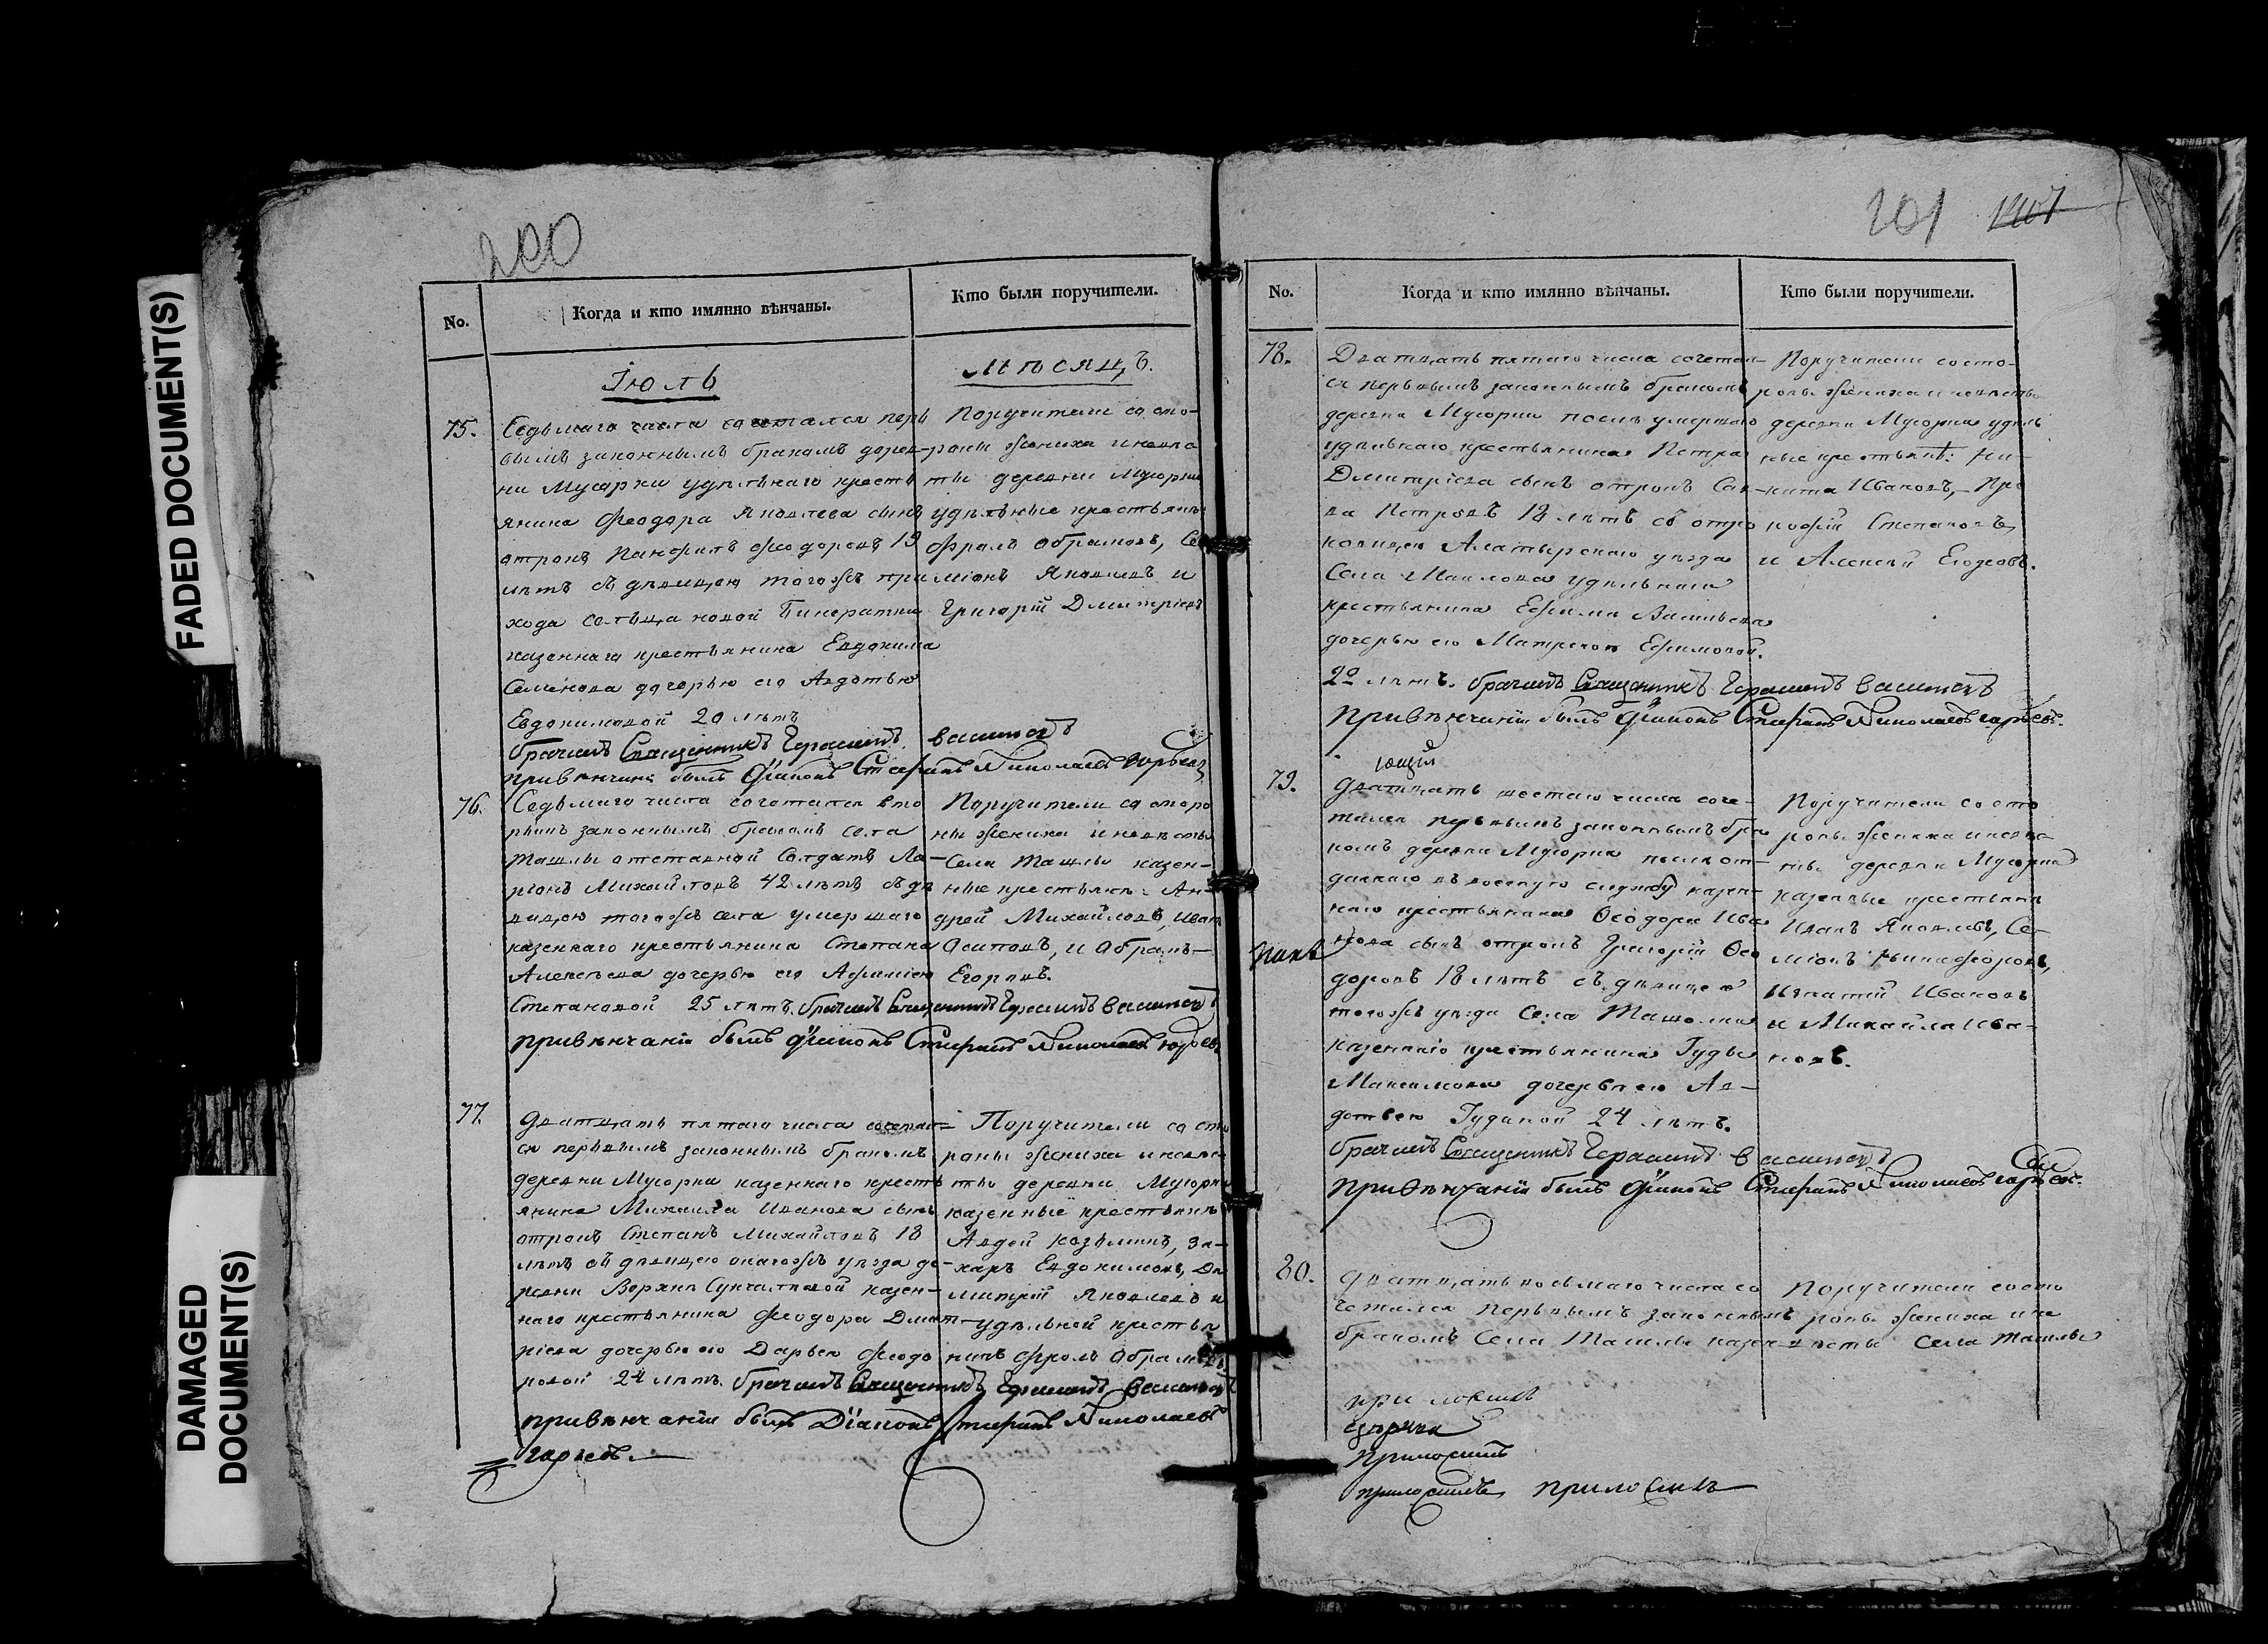 FADED DOCUMENT(S)
DAMAGED DOCUMENT(S)
200
No.
Когда и кто имянно вѣнчаны.
Кто были поручители.
Іюль
мѣсяцъ.
75.
Седьмаго числа сочетался перь
вымъ законнымъ бракомъ дерев-
ни Мусорки удѣльнаго кресть
янина Феодора Яковлева сынъ
отрокъ Панфилъ Феодоровъ 19
лѣтъ съ дѣвицею тогожъ при
хода сельца новой Бинаратки
казеннаго крестьянина Евдокима
Семенова дочерью его Авдотью
Евдокимовой 20 лѣтъ
Поручители со сто-
роны жениха и невѣс
ты деревни Мусорки
удѣльные крестьяне
Фролъ Абрамовъ, Се
міонъ Яковлевъ и
Григорій Дмитріевъ
брачилъ Священникъ Герасимъ Васильевъ
привѣнчаніи былъ Діаконъ Стефанъ Николаевъ
76.
Седьмаго числа сочетался вто
рымъ законнымъ бракомъ села
Ташлы отставной Солдатъ Ла-
ріонъ Михайловъ 42 лѣтъ съ дѣ
вицею тогожъ села умершаго
казеннаго крестьянина Степана
Алексѣева дочерью его Афимією
Степановой 25 лѣтъ. брачилъ Священникъ Герасимъ Васильевъ
привѣнчаніи былъ Діаконъ Стефанъ Николаевъ
Поручители со сторо
ны жениха и невѣсты
Села Ташлы казен-
ные крестьяне: Ан-
дрей Михайловъ, Иванъ
Осиповъ, и Абрамъ-
Егоровъ.
77.
Дватцать пятаго числа сочетал-
ся перьвымъ законнымъ бракомъ
деревни Мусорки казеннаго кресть
янина Михаила Иванова сынъ
отрокъ Степанъ Михайловъ 18
лѣтъ съ дѣвицею онагожъ уѣзда де-
ревни Верхнъ Сунчалѣевой казен-
наго крестьянина Феодора Дмит-
ріева дочерью его Дарьею Феодо
ровой 24 лѣтъ. брачилъ Священникъ Герасимъ Васильевъ
привѣнчаніи былъ Діаконъ Стефанъ Николаевъ
Поручители со сто
роны жениха и невѣс
ты деревни Мусорки
казенные крестьяне
Авдей Козьминъ, За-
харъ Евдокимовъ, Дм
митрій Яковлевъ и
удѣльной крестья
нинъ Фролъ Абрамовъ.
201
No.
Когда и кто имянно вѣнчаны.
Кто были поручители.
78.
Дватцать пятаго числа сочетал-
ся перьвымъ законнымъ бракомъ
деревни Мусорки послѣ умершаго
удѣльнаго крестьянина Петра
Дмитріева сынъ отрокъ Сав-
ва Петровъ 18 лѣтъ съ отро
ковицею Алатырскаго уѣзда
Села Маклова удѣльнаго
крестьянина Ефима Васильева
дочерью его Матреною Ефимовой.
22 лѣтъ. брачилъ Священникъ Герасимъ Васильевъ
привѣнчаніи былъ Діаконъ Стефанъ Николаевъ
Поручители со сто-
роны жениха и невѣсты
деревни Мусорки удѣль
ные крестьянѣ: Ни-
кита Ивановъ, Про
кофій Степановъ,
и Алексѣй
79.
Дватцать шестаго числа соче-
тался перьвымъ законнымъ бра
комъ деревни Мусорки послѣ от-
даннаго въ военную службу казен-
наго крестьянина Ѳеодора Ива
нова сынъ отрокъ Григорій Ѳео
доровъ 18 лѣтъ съ дѣвицею
тогожъ уѣзда Села
казеннаго крестьянина Іуды
Максимова дочерью его Ав-
дотьею Іудиной 24 лѣтъ.
брачилъ Священникъ Герасимъ Васильевъ
привѣнчаніи былъ Діаконъ Стефанъ Николаевъ
Поручители со сто
роны жениха и невѣс
ты деревни Мусорки
казенные крестьяне
Иванъ Яковлевъ, Се-
міонъ Никифоровъ,
Игнатій Ивановъ
и Михайла Ива-
новъ.
80.
Дватцать восьмаго числа со
четался перьвымъ законнымъ
бракомъ Села Ташлы казен-
Поручители со сто
роны жениха и не
вѣсты Села Ташлы
приложилъ
приложилъ
приложилъ приложилъ